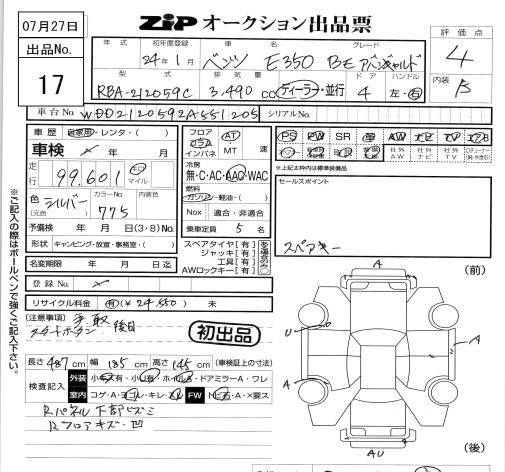 07月27日
出品No.
17
ZIP オークション出品票
評価点
4
内装
B
年式 初年度登録 車名 グレード
24年1月 ベンツ E350 BE アバンギャルド
型式 排気量 ドア ハンドル
RBA-212059C 3,490cc ディーラー・並行 4 左・右
車台No. WDD2120592A551205 シリアルNo.
車歴 自家用・レンタ( )
車検 年 月
走行 99,601 キロ マイル
色(元色) シルバー カラーNo. 775 内装色
予備検 年 月 日(3・8)No.
形状 キャンピング・放宣・事務室・( )
名変期限 年 月 日迄
登録No.
リサイクル料金 有(¥24,550) 未
フロア コラム インパネ AT MT 速
冷房
無・C・AC・AAC・WAC
燃料
ガソリン・軽油・( )
Nox 適合・非適合
乗車定員 5 名
スペアタイヤ[有]
ジャッキ[有]
工具[有]
AWロックキー[有]
ある場合のみ○
PS PW SR 革 AW ナビ TV エアB
社外AW 社外ナビ 社外TV
※上記太枠内は標準装備品
セールスポイント
スペアキー
※ご記入の際はボールペンで強くご記入下さい。
(注意事項) 手取
スタートボタン 後日
初出品
長さ 487cm 幅 185cm 高さ 145cm (車検証上の寸法)
検査記入 外装 小キズ有・小凹有・ホイルキズ・ドアミラーA・ワレ
室内 コゲ・A・ヨゴレ・キレ・スレ FW トビ石・A・×要ス
Rパネル下部ヒズミ
Rフロアキズ・凹
(前)
A
U
A
A
AU
(後)